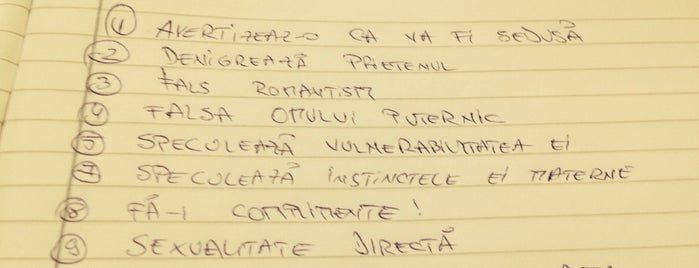 1 AVERTIZEAZ-O CA VA FI SEDUSĂ
2 DENIGREAZĂ PRIETENUL
3 FALS ROMANTISM
4 FALSA OMULUI PUTERNIC
5 SPECULEAZĂ VULNERABILITATEA EI
7 SPECULEAZĂ INSTINCTELE EI MATERNE
8 FĂ-I COMPLIMENTE!
9 SEXUALITATE DIRECTĂ